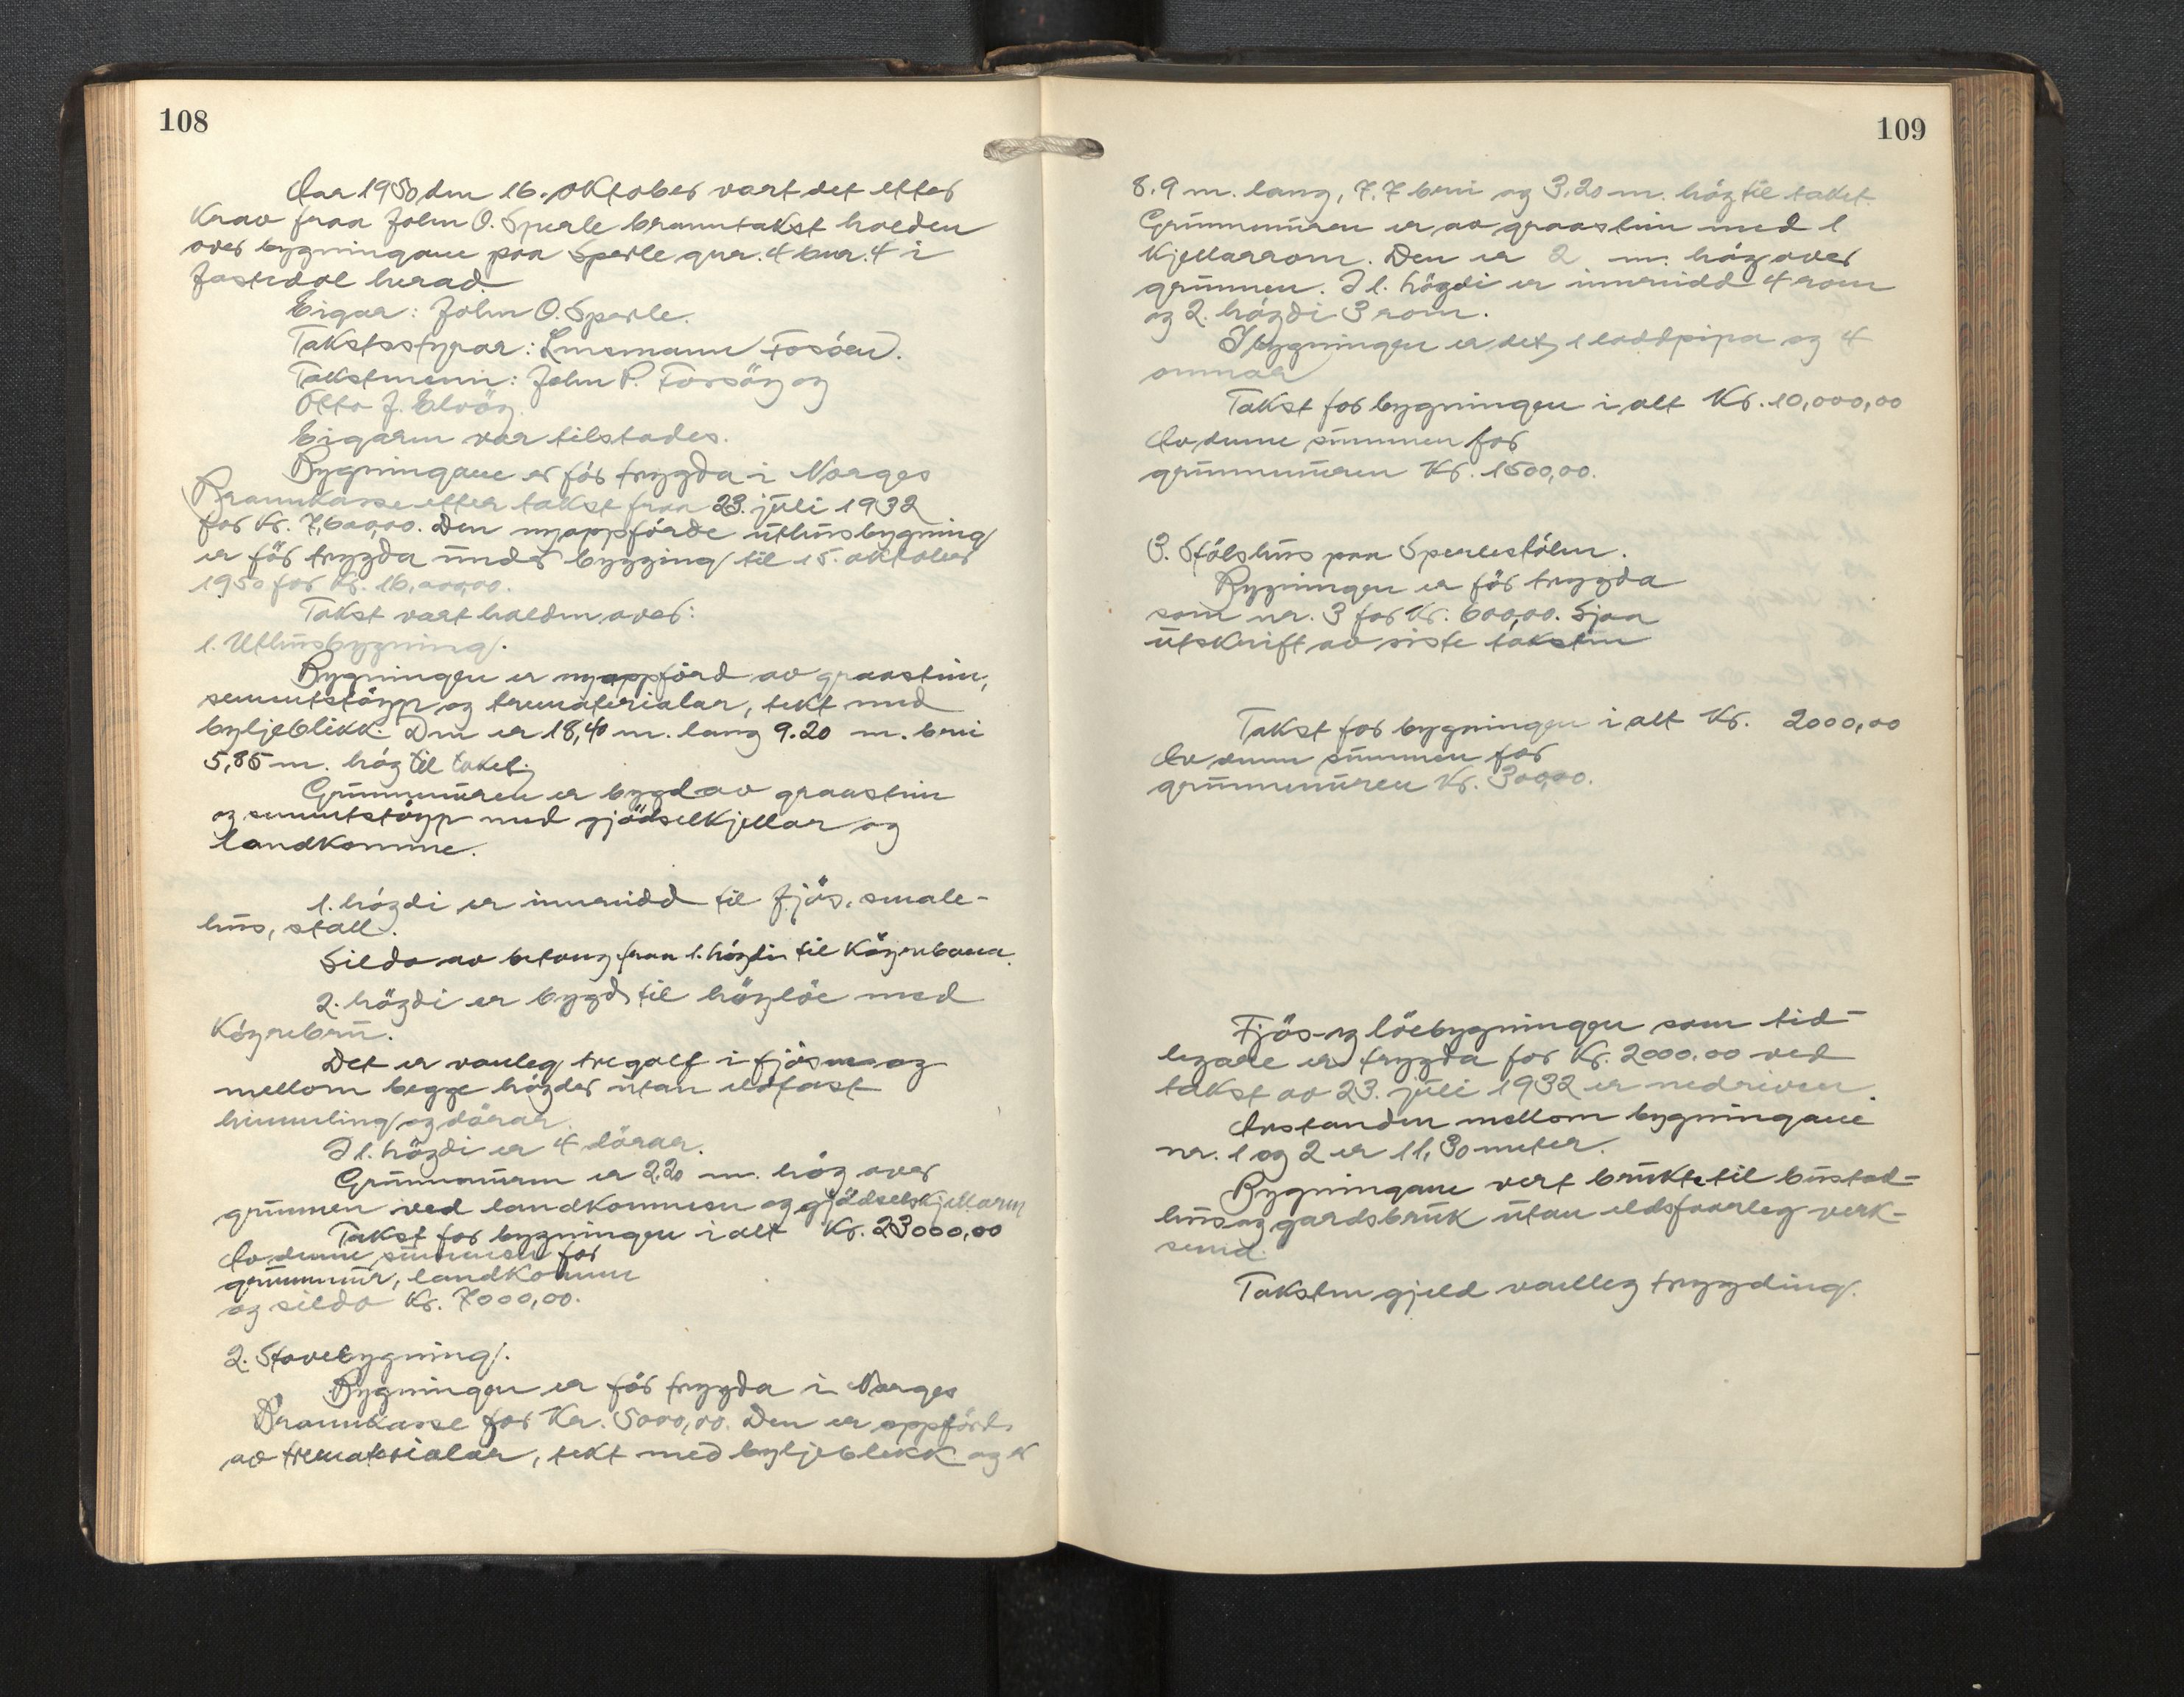 108
Aar 1950 den 16. oktober vart det etter
krav fraa John O. Sperle branntakst halden
over bygningane paa Sperle gnr. 4 bnr. 4 i
Jostedal herad.
Eigar: John O. Sperle.
Takststyrar: Lensmann Fosøen.
Takstmenn: John P. Forsøy og
Otto J. Elvøy.
Eigaren var tilstades.
Bygningane er før trygda i Norges
Brannkasse etter takst fraa 23. juli 1932
for kr. 7,600,00. Den nyoppførde uthusbygning
er før trygda under bygging til 15. oktober
1950 for kr. 16,000,00.
Takst vart halden over:
1. Uthusbygning.
Bygningen er nyoppførd av graastein,
sementstøyp og trematerialar, tekt med
bylgjeblikk. Den er 18,40 m. lang 9.20 m. brei
5,85 m. høg til taket.
Grunnmuren er bygd av graastein
og sementstøyp med gjødselkjellar og
landkomme.
1. høgdi er innreidd til fjøs, smale-
hus, stall.
Silda av betong fraa 1. høgdi til køyrebana.
2. høgdi er bygd til høyløe med
køyrebru.
Det er vanleg tregolf i fjøsen og
mellom begge høgder utan eldfast
himmling og dørar.
I 1. høgdi er 4 dørar.
Grunnmuren er 2,20 m. høg over
grunnen ved landkommen og gjødselskjellaren
Takst for bygningen i alt Kr. 23000,00
Av denne summen for
grunnmur, landkomme
og silda Kr. 7000,00.
2. Stovebygning.
Bygningen er før trygda i Norges
Brannkasse for Kr. 5000,00. Den er oppførd
av trematerialar, tekt med bylgjeblekk og er
109
8.9 m. lang, 7.7 brei og 3,20 m. høg til taket.
Grunnmuren er av graastein med 1
kjellarrom. Den er 2 m. høg over
grunnen. I 1. høgdi er innreidd 4 rom
og 2. høgdi 3 rom.
I bygningen er det 1 loddpipa og 4
omnar
Takst for bygningen i alt Kr. 10,000,00
Av denne summen for
grunnmuren Kr. 1500,00.
3. Stølshus paa Sperlestølen.
Bygningen er før trygda
som nr. 3 for Kr. 600,00. Sjaa
utskrift av siste taksten
Takst for bygningen i alt Kr. 2000,00
Av denne summen for
grunnmuren Kr. 300,00.
Fjøs- og løebygningen som tid-
legare er trygda for Kr. 2000,00 ved
takst av 23. juli 1932 er nedriven.
Avstanden mellom bygningane
nr. 1 og 2 er 11,30 meter.
Bygningane vert brukte til bustad-
hus og gardsbruk utan eldsfaarleg verk-
semd.
Taksten gjeld vanleg trygding.